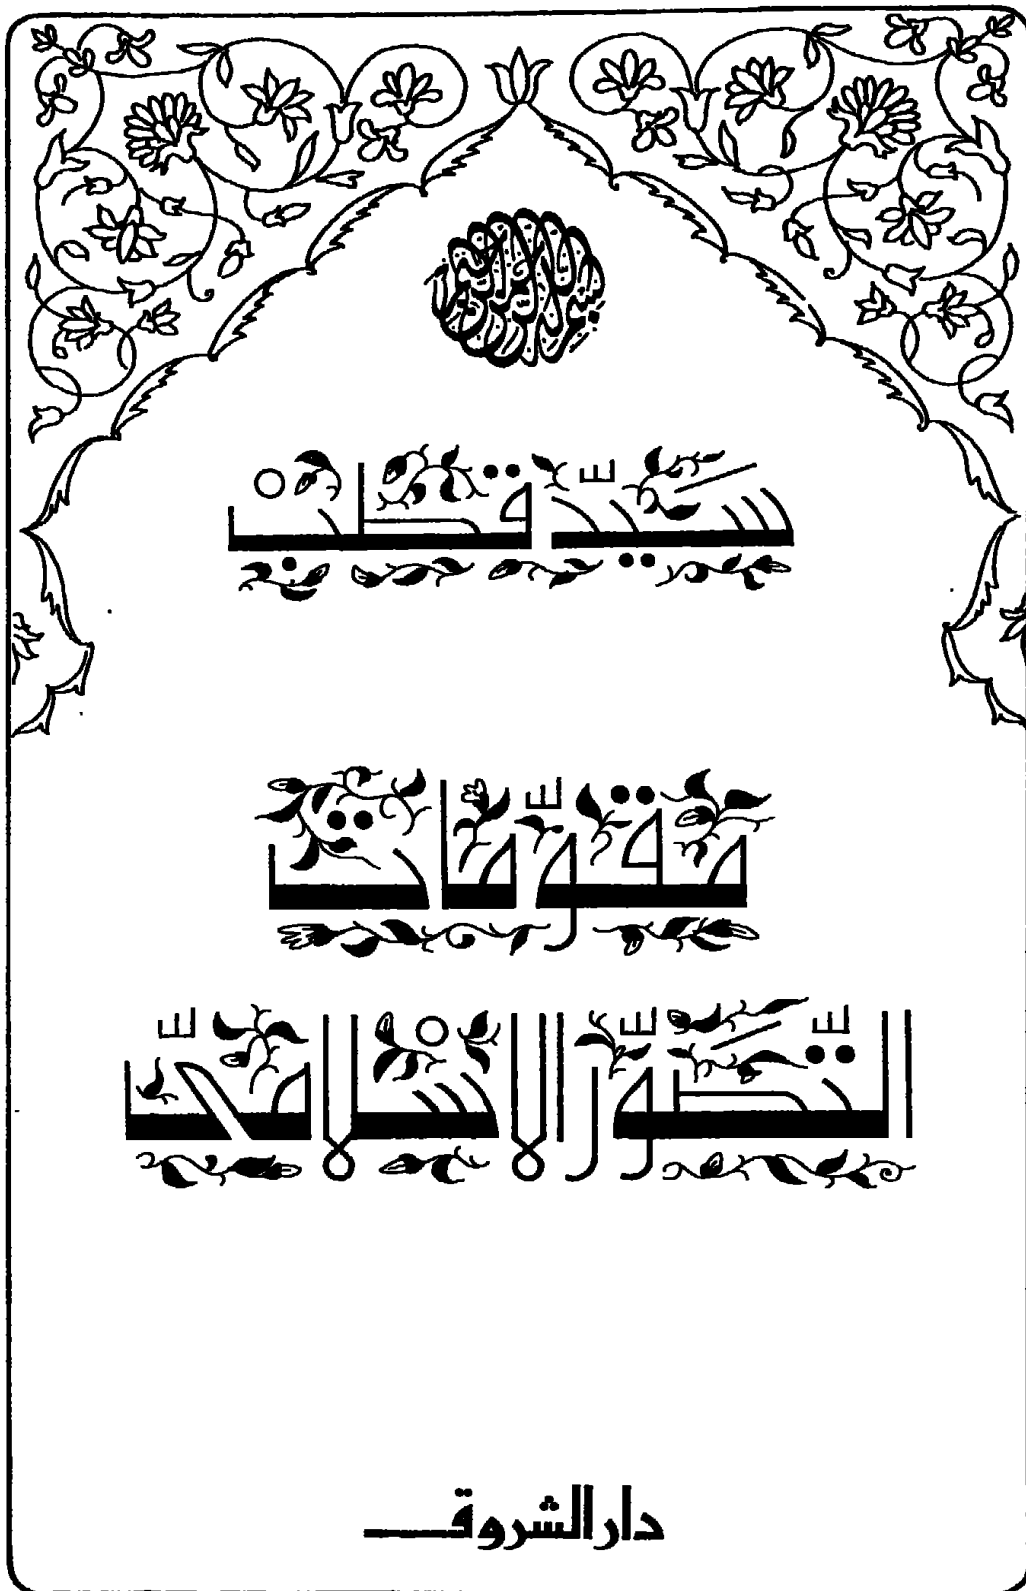 بسم الله الرحمن الرحيم
سيّد قطب
مقوّمات
التّصوّر الإسلاميّ
دار الشروق